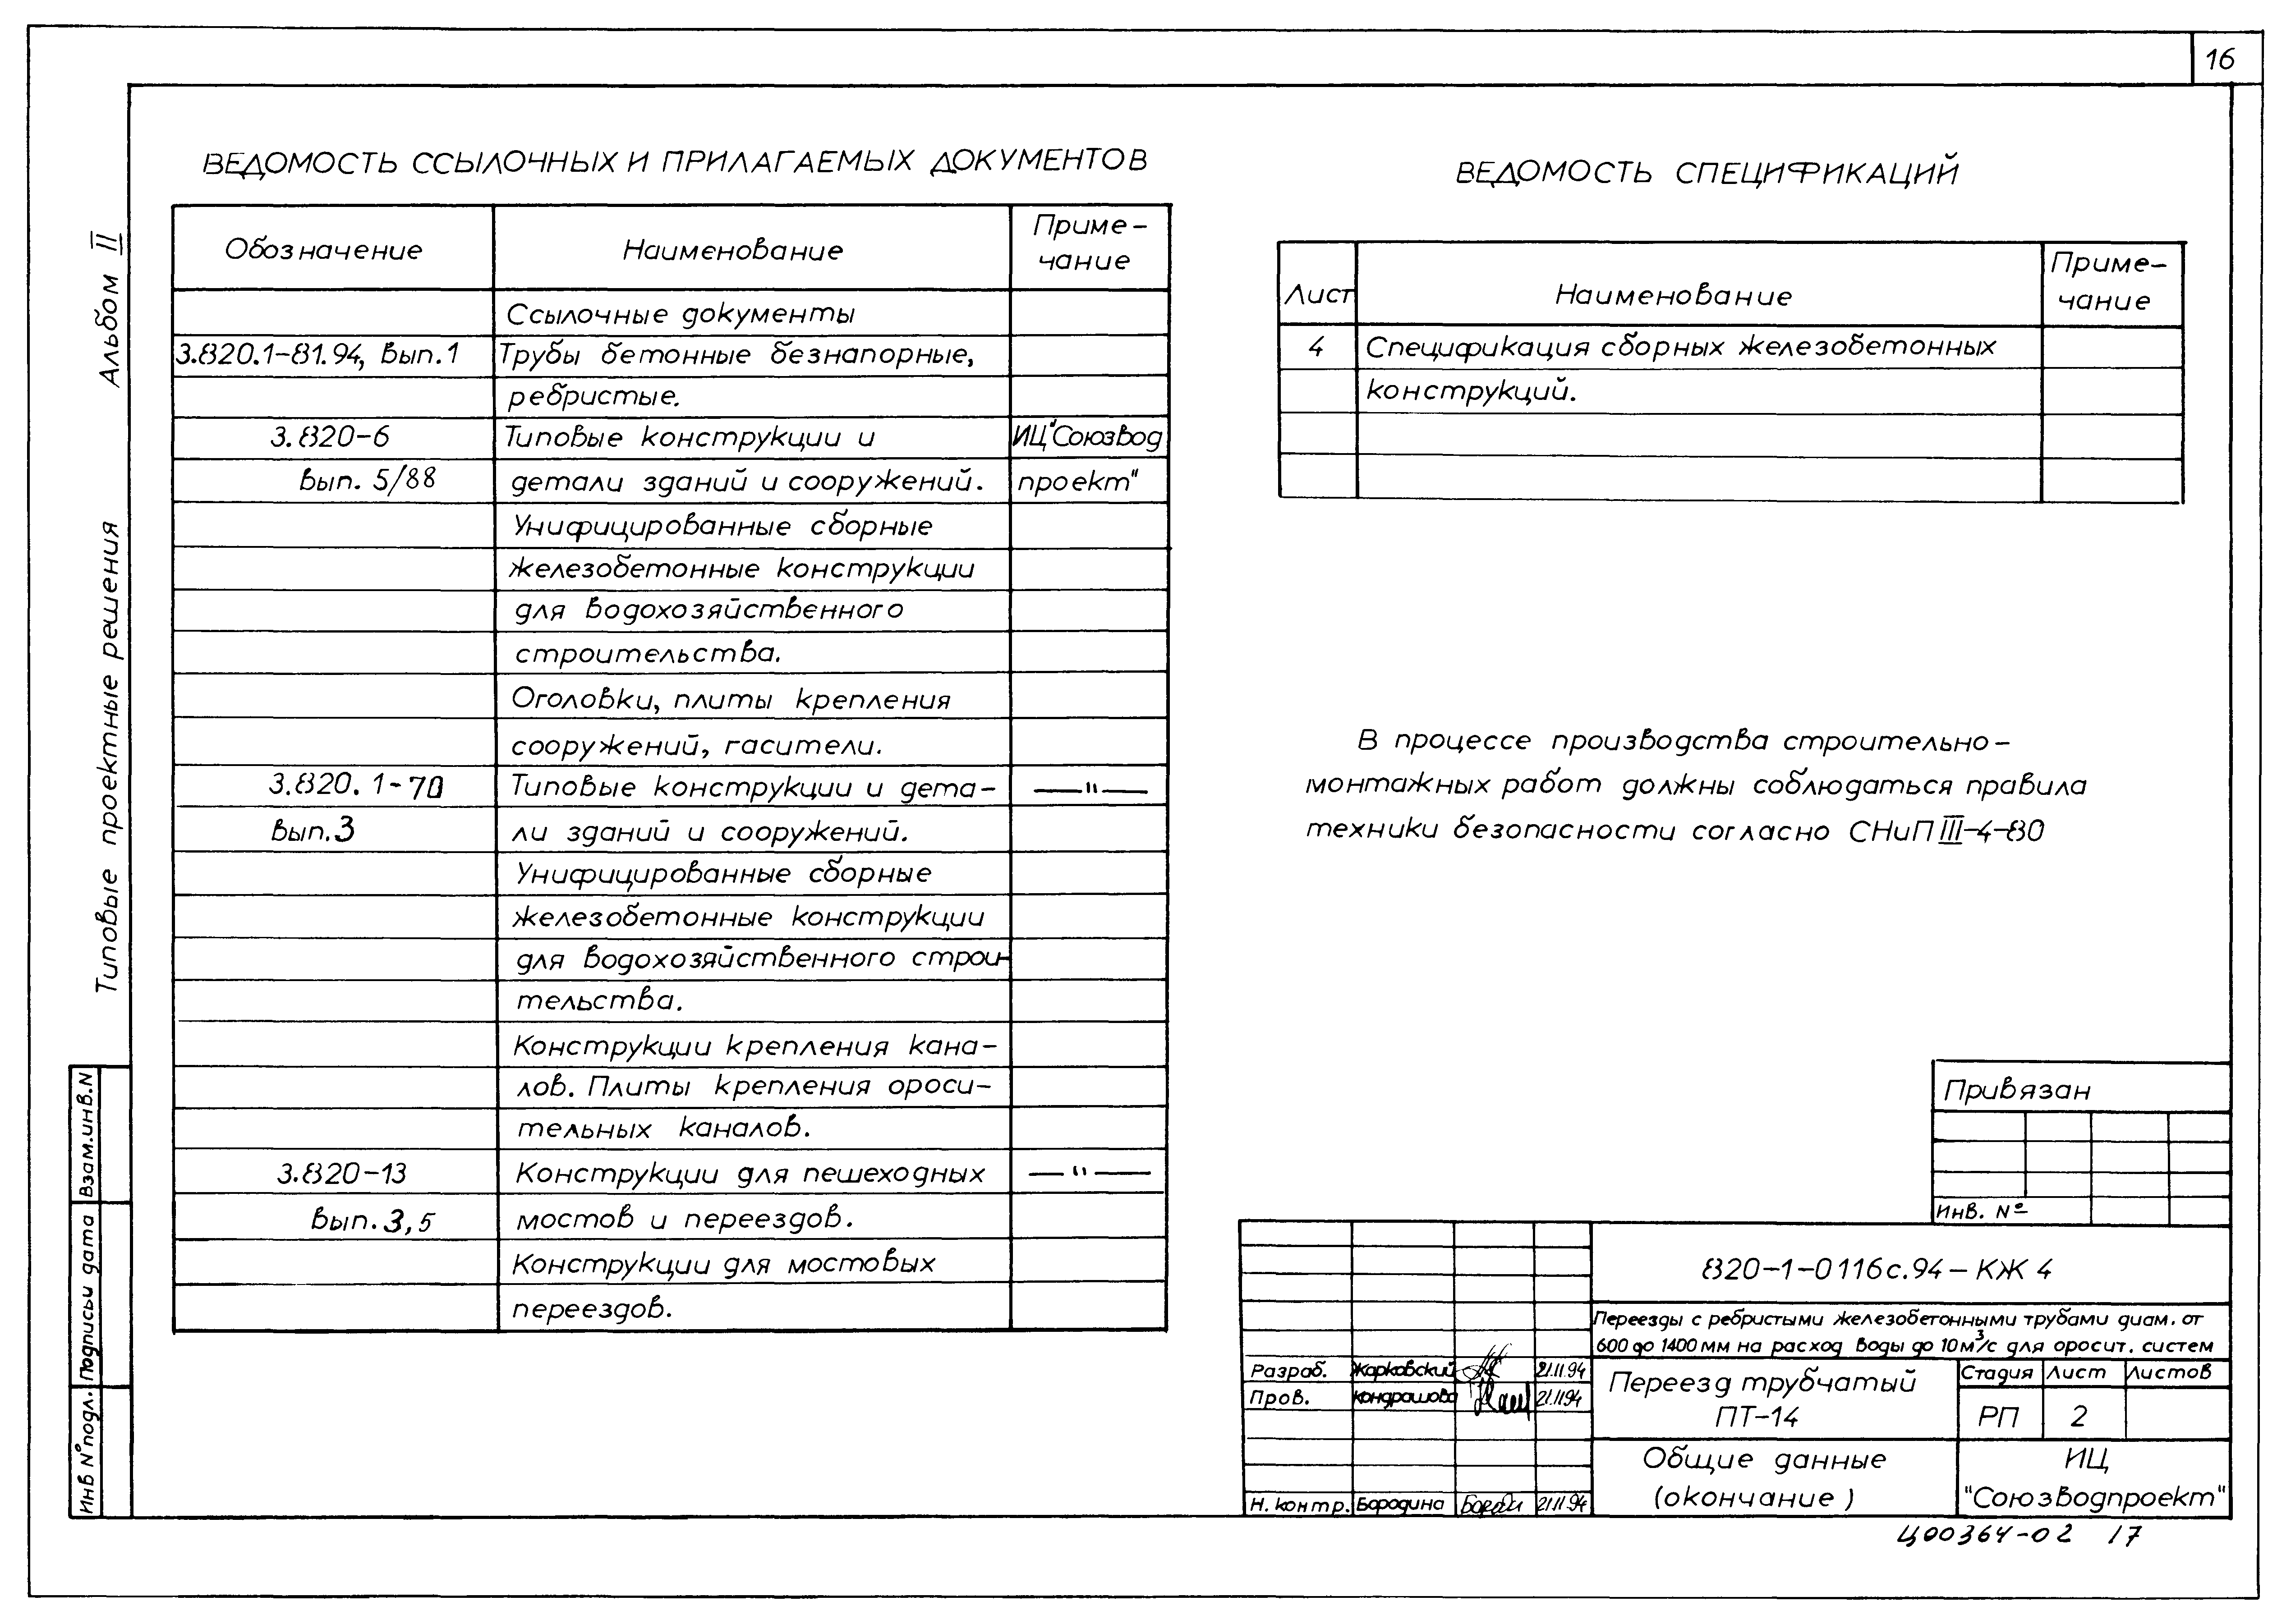 16
Альбом II
Типовые проектные решения
Взам.инв.N
Подписьи дата
Инв N° подл.
ВЕДОМОСТЬ ССЫЛОЧНЫХ И ПРИЛАГАЕМЫХ ДОКУМЕНТОВ
Обозначение Наименование Приме-
чание
Ссылочные документы
3.820.1-81.94, вып.1 Трубы бетонные безнапорные,
ребристые.
3.820-6 Типовые конструкции и ИЦ"Союзвод
вып. 5/88 детали зданий и сооружений. проект"
Унифицированные сборные
железобетонные конструкции
для водохозяйственного
строительства.
Оголовки, плиты крепления
сооружений, гасители.
3.820.1-70 Типовые конструкции и дета- —"—
вып.3 ли зданий и сооружений.
Унифицированные сборные
железобетонные конструкции
для водохозяйственного строи-
тельства.
Конструкции крепления кана-
лов. Плиты крепления ороси-
тельных каналов.
3.820-13 Конструкции для пешеходных —"—
вып.3,5 мостов и переездов.
Конструкции для мостовых
переездов.
ВЕДОМОСТЬ СПЕЦИФИКАЦИЙ
Лист Наименование Приме-
чание
4 Спецификация сборных железобетонных
конструкций.
В процессе производства строительно-
монтажных работ должны соблюдаться правила
техники безопасности согласно СНиП III-4-80
Привязан
Инв. №
820-1-0116с.94-КЖ 4
Переезды с ребристыми железобетонными трубами диам. от
600 до 1400 мм на расход воды до 10 м³/с для оросит. систем
Разраб. Жарковский 21.11.94
Пров. Кондрашова 21.11.94
Н. контр. Бородина 21.11.94
Переезд трубчатый
ПТ-14
Стадия Лист Листов
РП 2
Общие данные
(окончание)
ИЦ
"Союзводпроект"
Ц00364-02 17